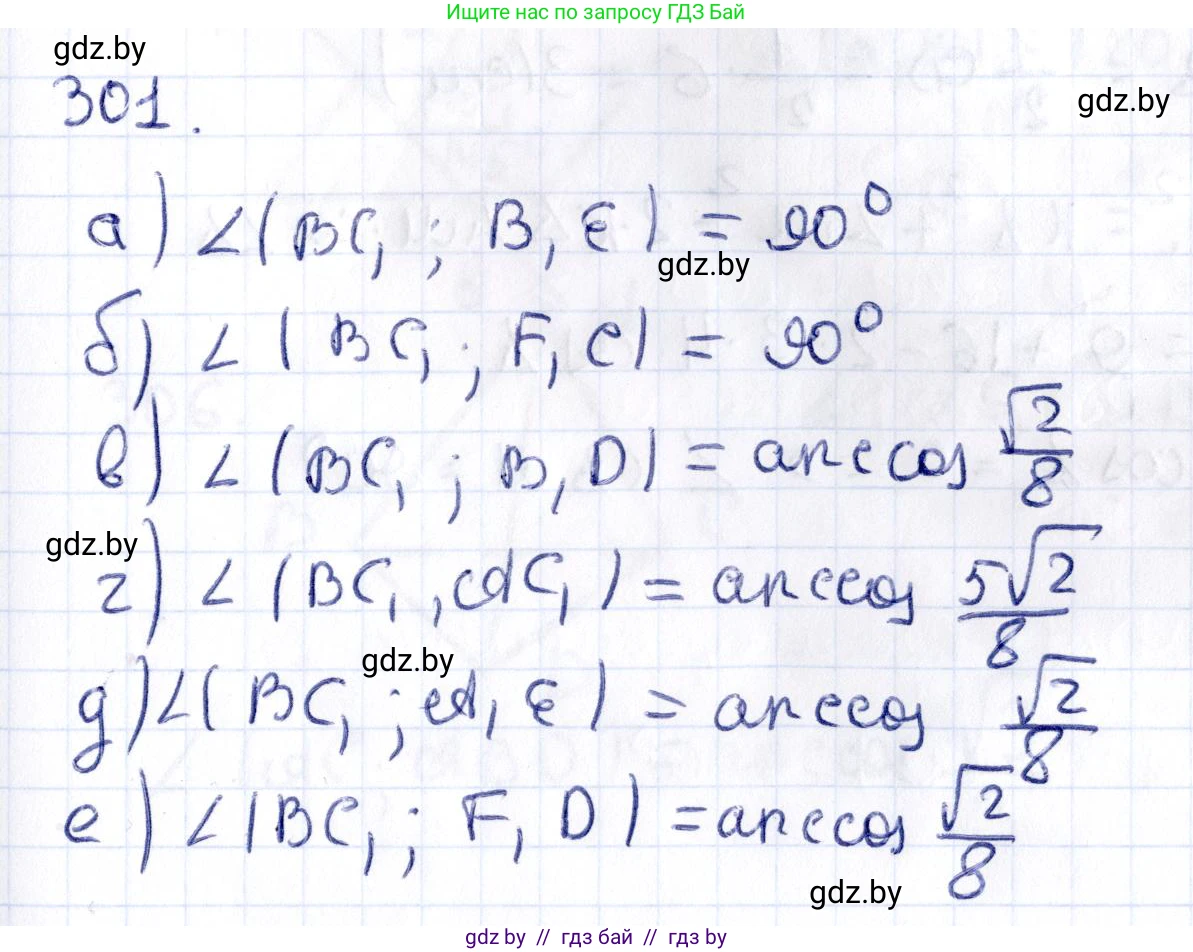 Ищите нас по запросу ГДЗ Бай
gdz.by
301.
gdz.by
а) ∠(BC₁; B₁E) = 90⁰
gdz.by
б) ∠(BC₁; F₁C) = 90⁰
в) ∠(BC₁; B₁D) = arccos √2/8
gdz.by
г) ∠(BC₁, AC₁) = arccos 5√2/8
gdz.by
д) ∠(BC₁; A₁E) = arccos √2/8
е) ∠(BC₁; F₁D) = arccos √2/8
gdz.by
gdz.by // гдз бай // gdz by